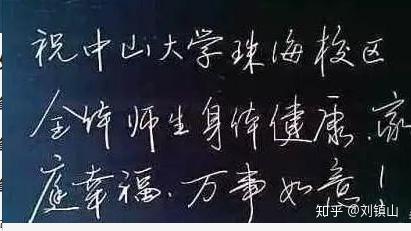 祝中山大学珠海校区
全体师生身体健康.家
庭幸福.万事如意!
知乎 @刘镇山